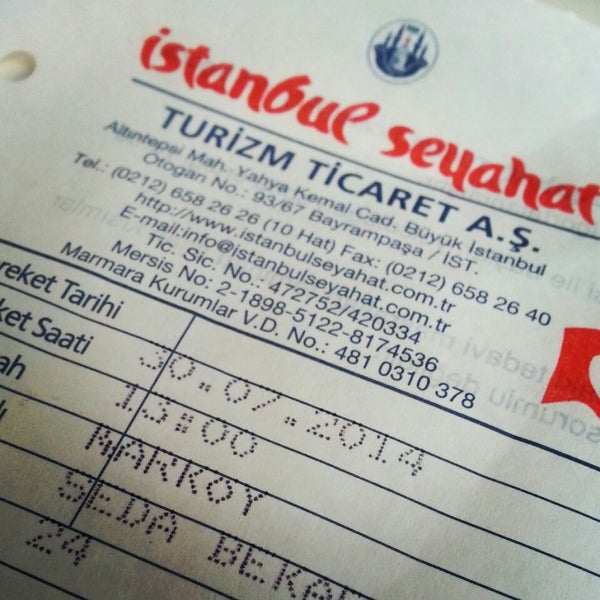 istanbul seyahat
TURİZM TİCARET A.Ş.
Altıntepsi Mah. Yahya Kemal Cad. Büyük İstanbul
Otogarı No.: 93/67 Bayrampaşa / İST.
Tel.: (0212) 658 26 26 (10 Hat) Fax: (0212) 658 26 40
http://www.istanbulseyahat.com.tr
E-mail:info@istanbulseyahat.com.tr
Tic. Sic. No.: 472752/420334
Mersis No: 2-1898-5122-8174536
Marmara Kurumlar V.D. No.: 481 0310 378
reket Tarihi 30.07.2014
ket Saati 15:00
ah NARKOY
lı SEDA BEKA
24